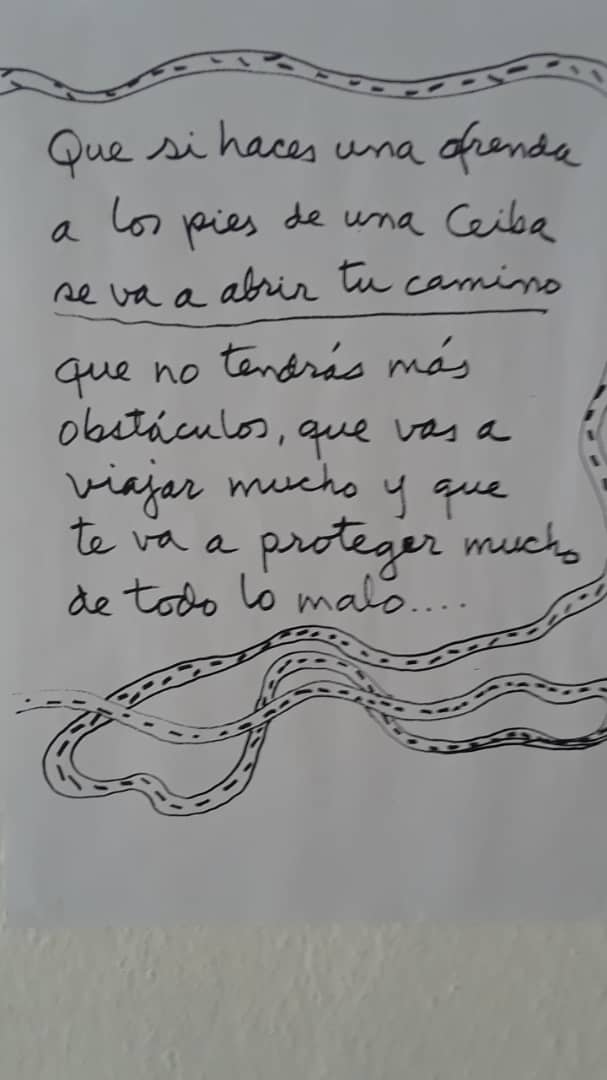 Que si haces una ofrenda
a los pies de una Ceiba
se va a abrir tu camino
que no tendrás más
obstáculos, que vas a
viajar mucho y que
te va a proteger mucho
de todo lo malo....